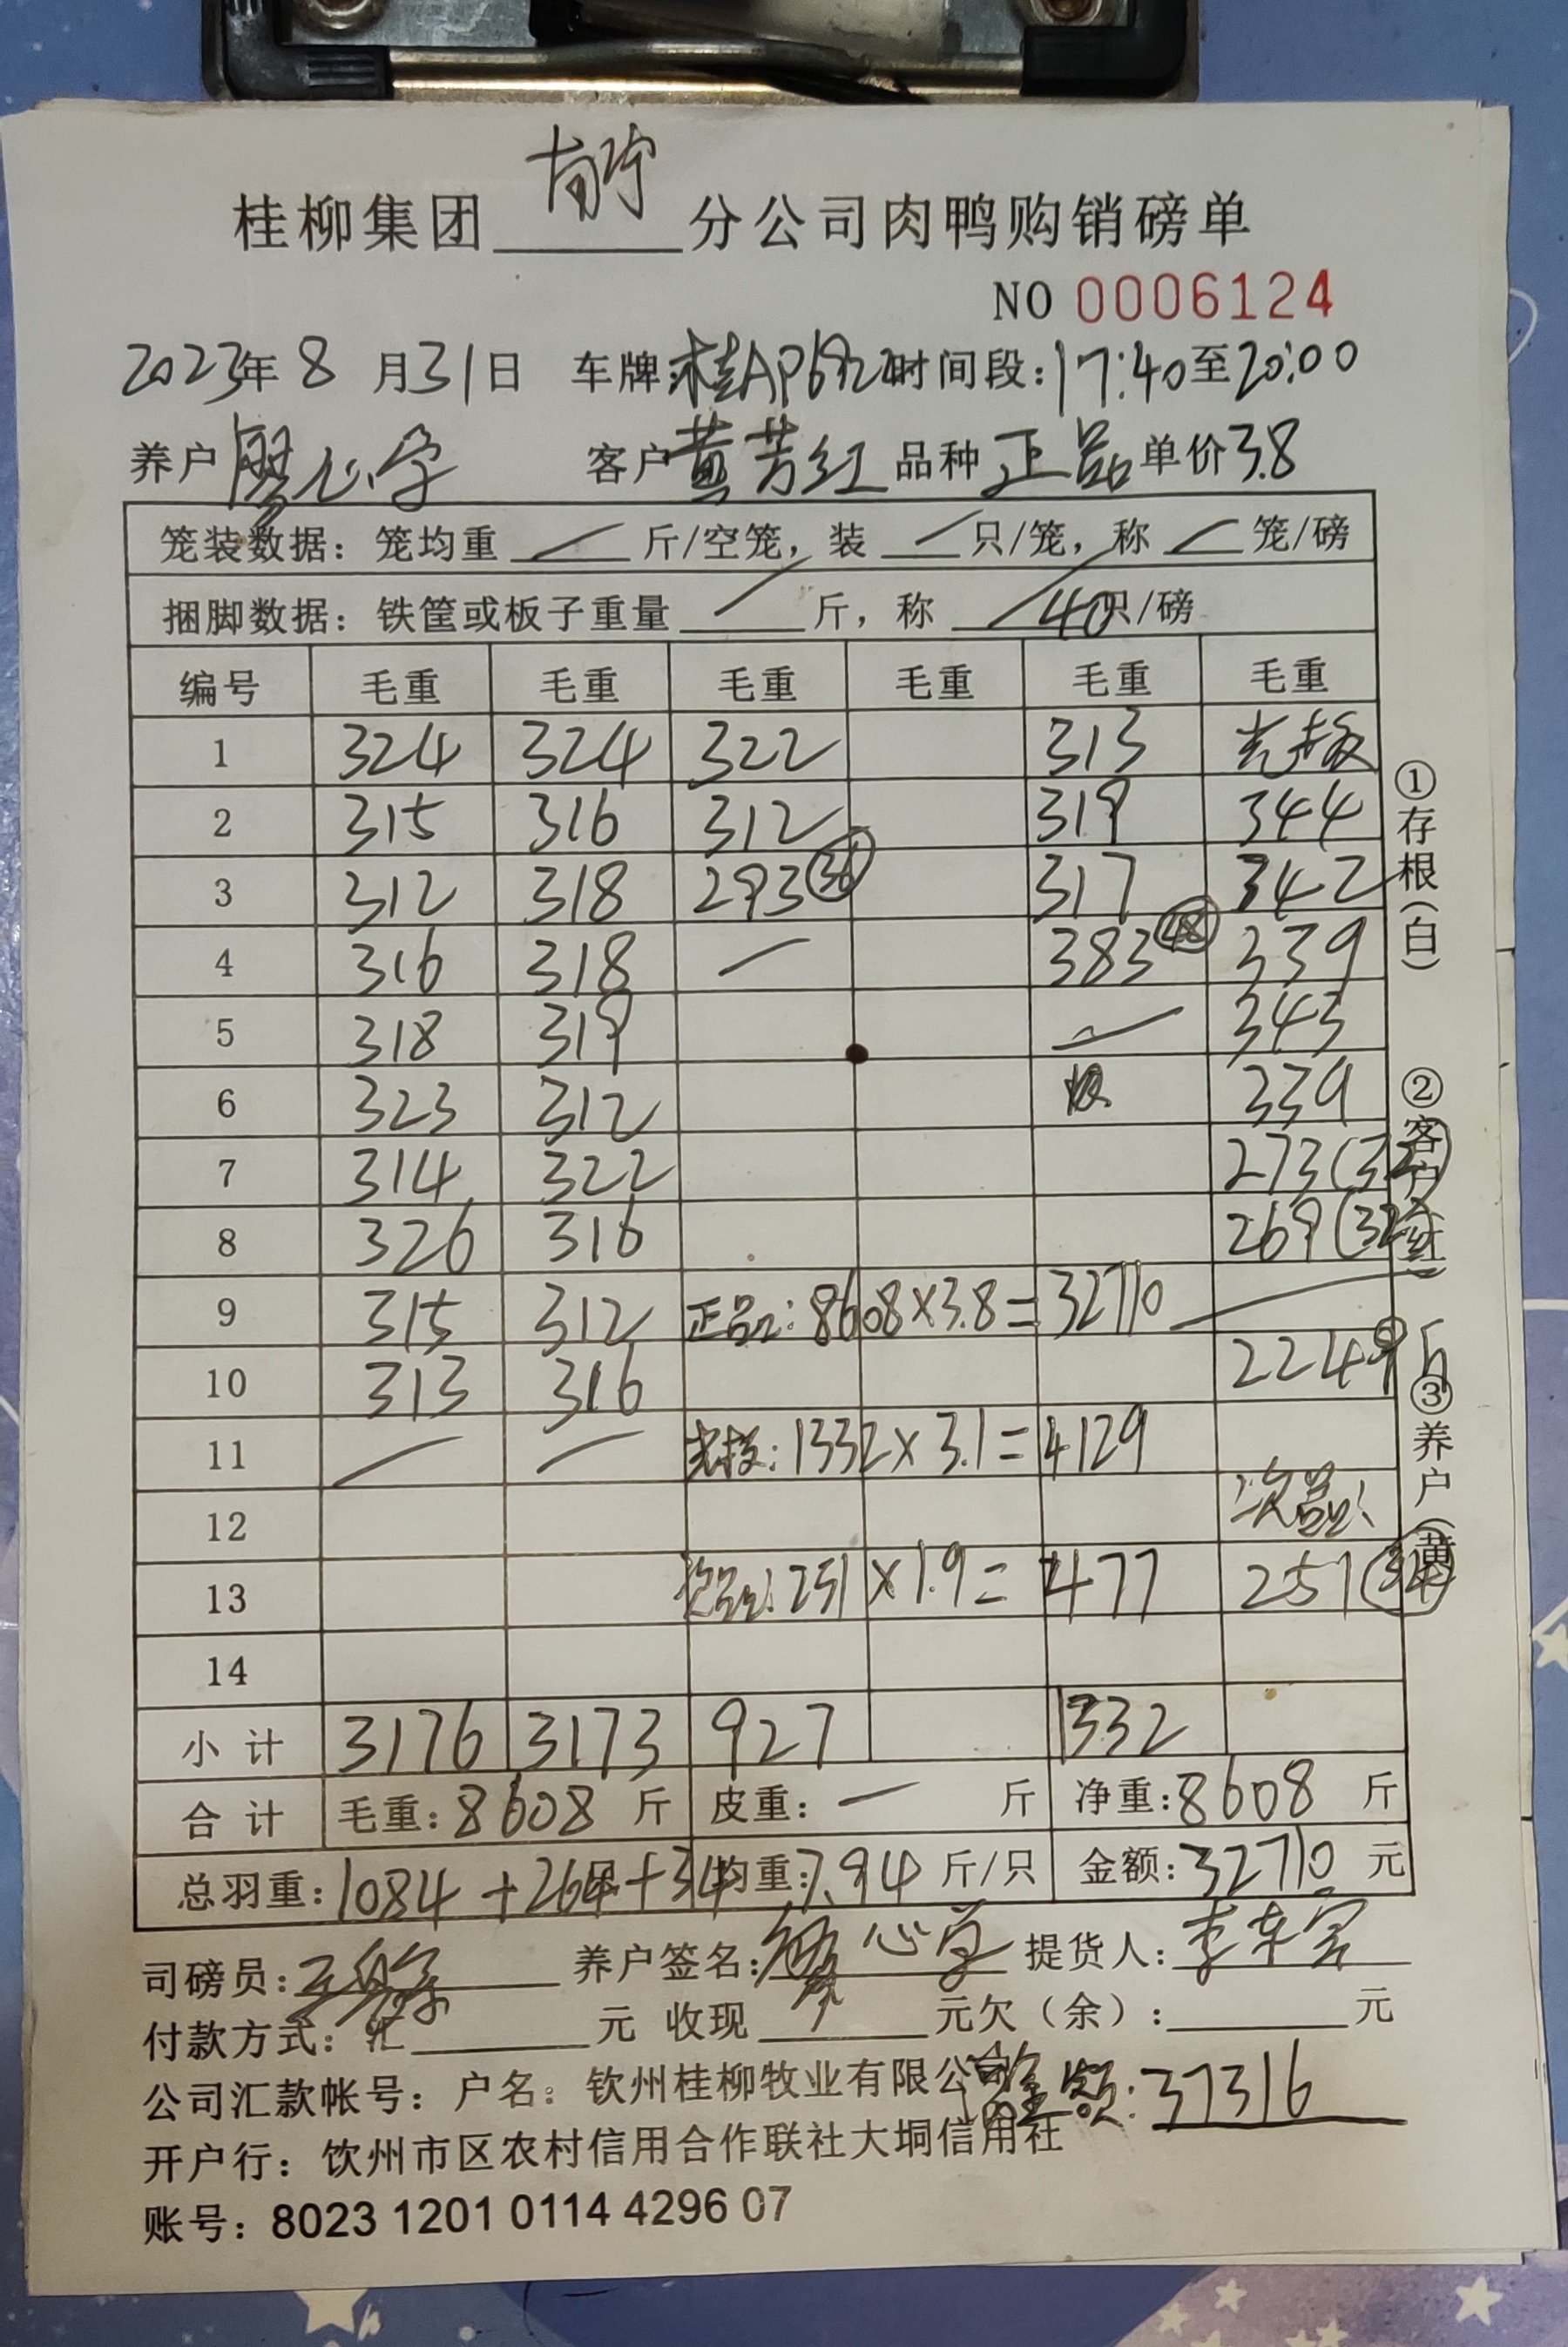 桂柳集团 南宁 分公司肉鸭购销磅单
NO 0006124
2023年 8 月31日 车牌:桂AP6922 时间段:17:40至20:00
养户 廖心学 客户 黄芳红 品种 正品 单价3.8
笼装数据: 笼均重 — 斤/空笼, 装 — 只/笼, 称 — 笼/磅
捆脚数据: 铁筐或板子重量 — 斤, 称 40只/磅
编号 毛重 毛重 毛重 毛重 毛重 毛重
1 324 324 322 313
2 315 316 312 319 344
3 312 318 293(36) 317 342
4 316 318 — 383(48) 339
5 318 319 — 343
6 323 312 339
7 314 322 273(32)
8 326 316 269(32)
9 315 312 正品:8608×3.8=32710 —
10 313 316 2249斤
11 — — :1332×3.1=4129
12 次品:
13 次品:251×1.9=477 251(34)
14
小计 3176 3173 927 1332
合计 毛重:8608 斤 皮重: — 斤 净重:8608 斤
总羽重:1084+264+34 均重:7.94 斤/只 金额:32710 元
司磅员: 养户签名:廖心学 提货人:
付款方式: 汇 元 收现 元欠(余): 元
公司汇款帐号: 户名: 钦州桂柳牧业有限公司
总金额:37316
开户行: 钦州市区农村信用合作联社大垌信用社
账号: 8023 1201 0114 4296 07
①存根(白)
②客户(红)
③养户(黄)